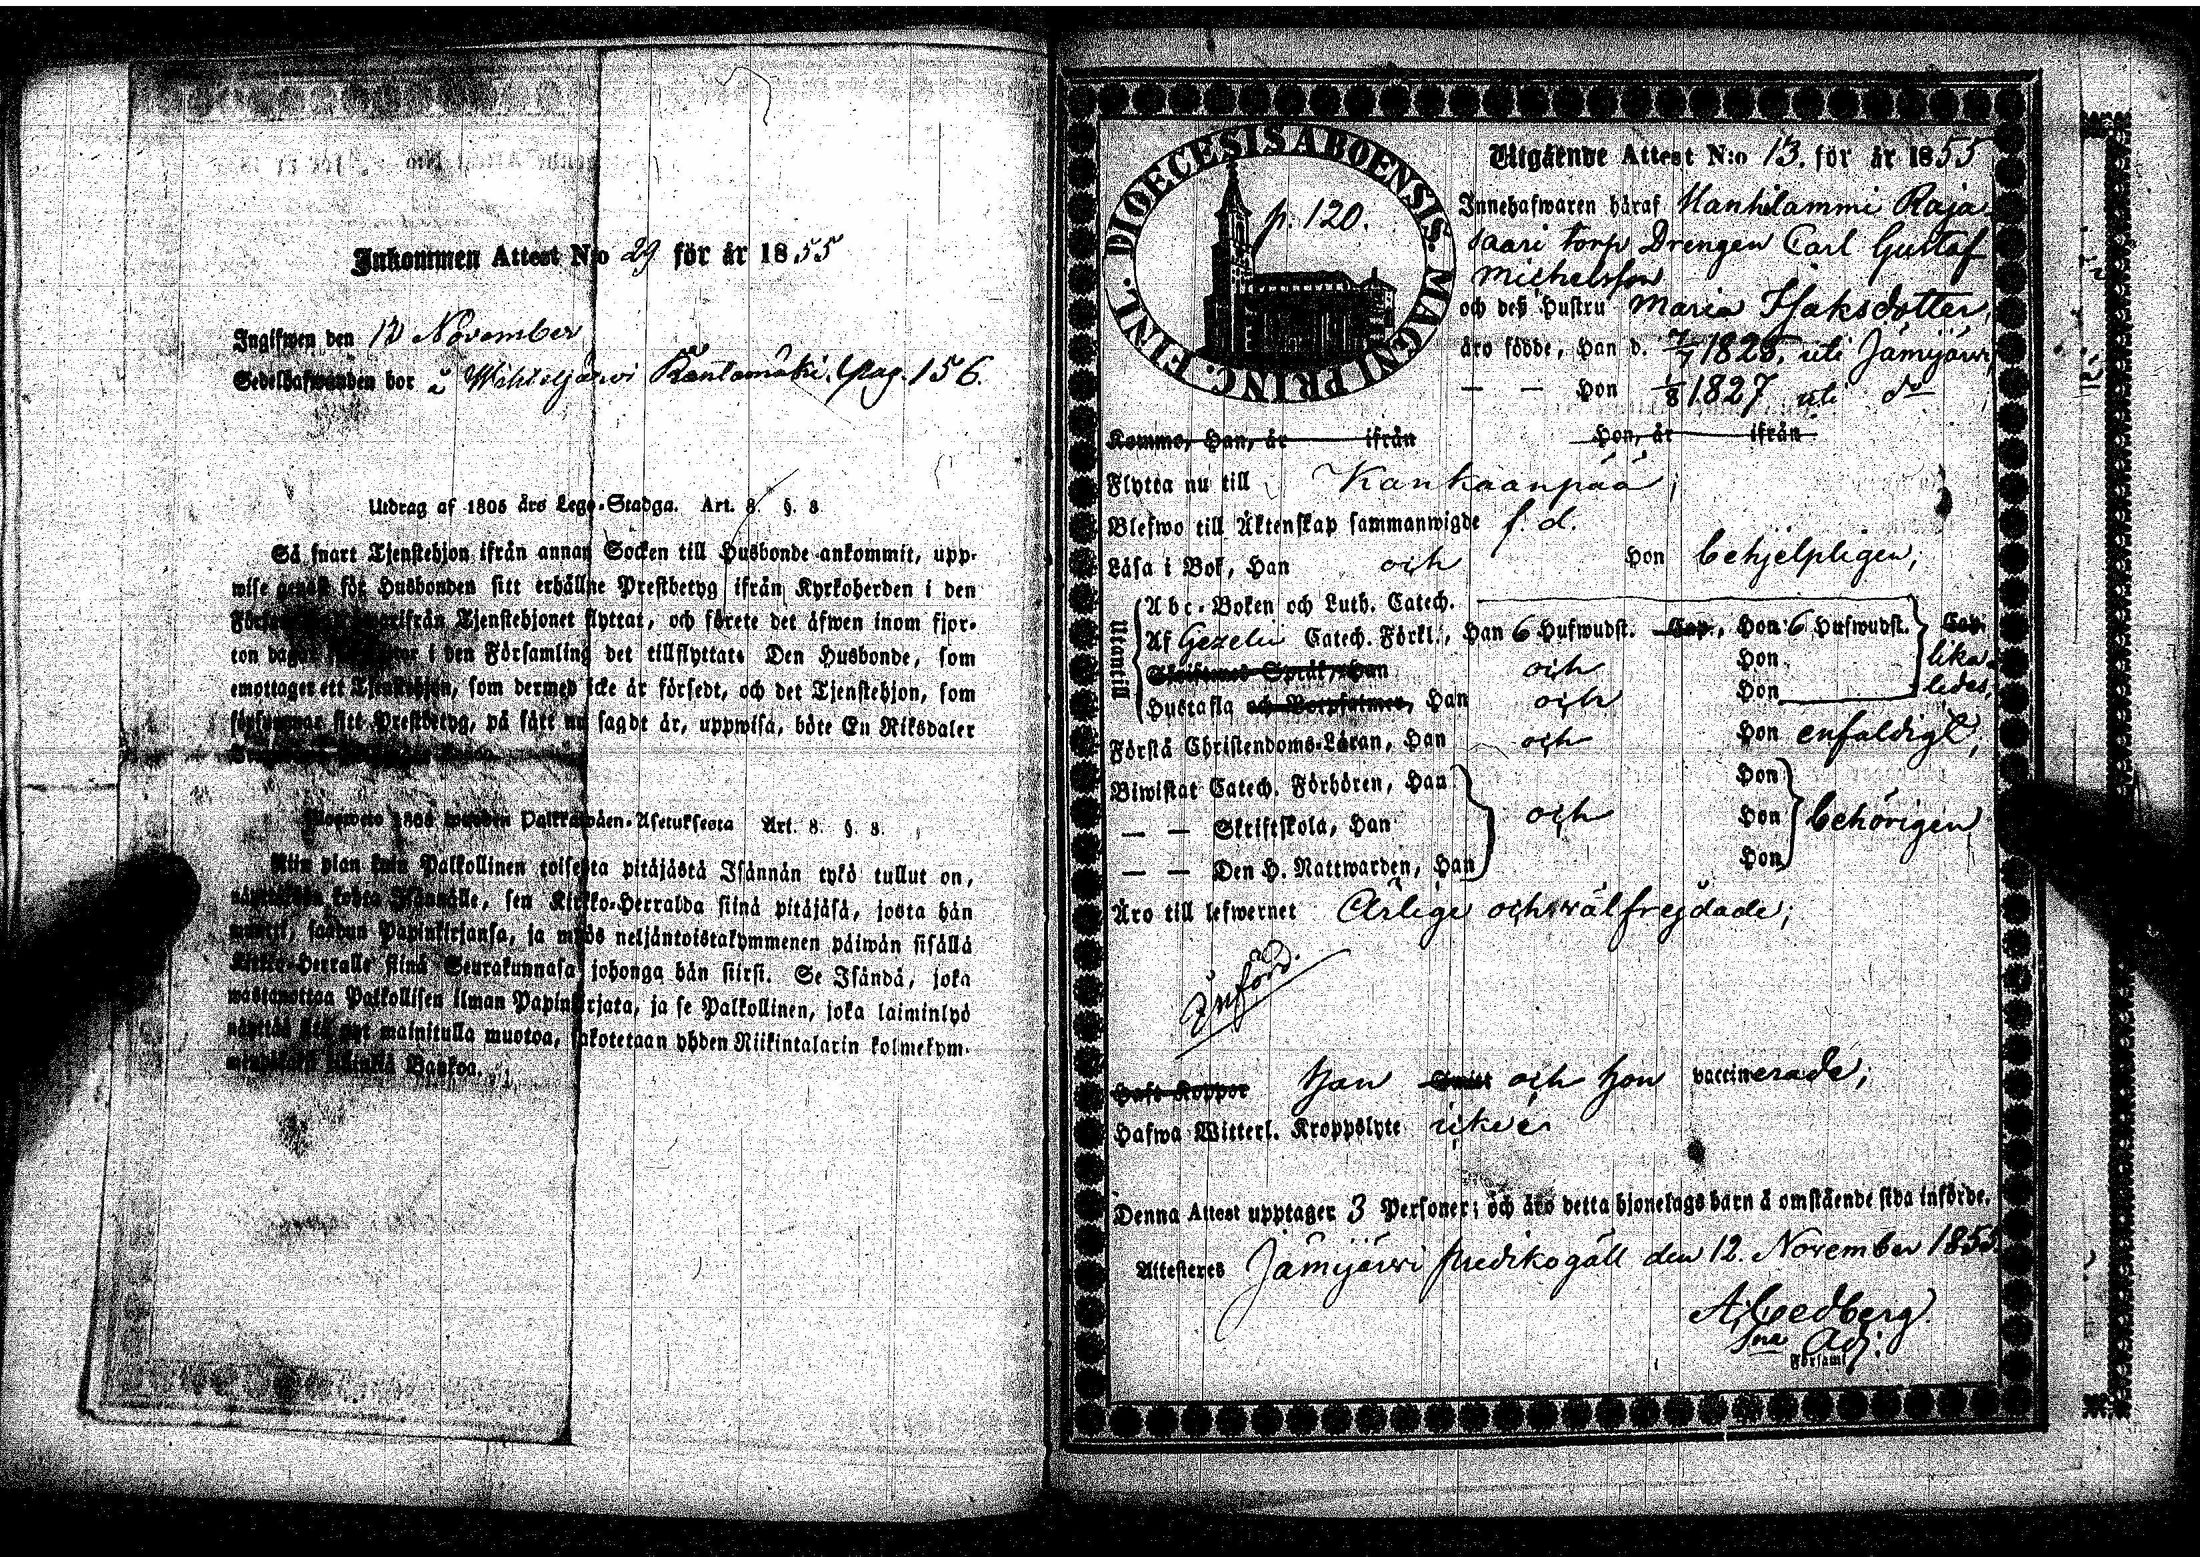 Inkommen Attest N:o 29 för år 1855
Ingifwen den 12 November
Sedelhafwanden bor i Wihteljärwi Kantomäki. Pag. 156.
Utdrag af 1805 års Lego-Stadga. Art. 8. §. 8
Så snart Tjenstehjon ifrån annan Socken till Husbonde ankommit, upp-
wise genast för Husbonden sitt erhållne Prestbetyg ifrån Kyrkoherden i den
Församling hwarifrån Tjenstehjonet flyttat, och förete det äfwen inom fjor-
ton dagar i den Församling det tillflyttat. Den Husbonde, som
emottager ett Tjenstehjon, som dermed icke är försedt, och det Tjenstehjon, som
försummar sitt Prestbetyg, på sätt nu sagdt är, uppwisa, böte En Riksdaler
Wuonna 1805 Palkkawäen-Asetuksesta Art. 8. §. 8.
Niin pian kuin Palkollinen toisesta pitäjästä Isännän tykö tullut on,
kohta Isännälle, sen Kirkko-Herralda siinä pitäjäsä, josta hän
muutti, saadun Papinkirjansa, ja myös neljäntoistakymmenen päiwän sisällä
Kirkko-Herralle siinä Seurakunnasa johonga hän siirsi. Se Isändä, joka
wastanottaa Palkollisen ilman Papinkirjata, ja se Palkollinen, joka laiminlyö
näyttää sitä nyt mainitulla muotoa, sakotetaan yhden Riikintalarin kolmekym-
Bankoa.
DIOECESIS ABOENSIS. MAGNI PRINC. FINL.
p. 120.
Utgående Attest N:o 13. för år 1855
Innehafwaren häraf Hanhilammi Raja-
saari torp Drengen Carl Gustaf
Michelsson
och deß Hustru Maria Isaksdotter,
äro födde, Han d. 7/7 1825, uti Jämijärwi,
— — Hon 1/8 1827 uti do
Komme, Han, år ifrån Hon, år ifrån
Flytta nu till Kankaanpää;
Blefwo till Äktenskap sammanwigde f. d.
Läsa i Bok, Han och Hon behjelpligen;
Utantill
Abc-Boken och Luth. Catech.
Af Gezelii Catech. Förkl., Han 6 Hufwudst. Cap., Hon 6 Hufwudst. Cap.
Skriftenes Språk, Han och Hon lika-
Hustafla och Botpsalmer, Han och Hon ledes,
Förstå Christendoms-Läran, Han och Hon enfaldigt,
Biwistat Catech. Förhören, Han Hon
— — Skriftskola, Han och Hon behörigen
— — Den H. Nattwarden, Han Hon
Äro till lefwernet Ärlige och wälfrejdade;
Införd.
Haft Koppor Han och Hon vaccinerade;
Hafwa Witterl. Kroppslyte icke
Denna Attest upptager 3 Personer; och äro detta hjonelags barn å omstående sida införde.
Attesteras Jämijärwi predikogäll den 12. November 1855.
A. Cedberg
Adj.
Församl.